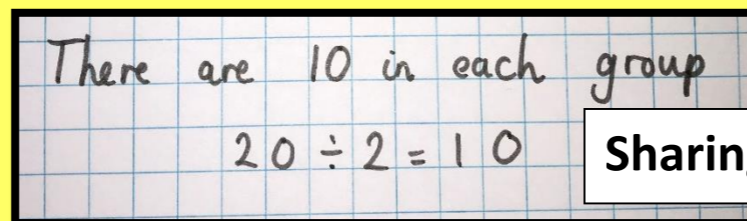 There are 10 in each group
20 ÷ 2 = 10